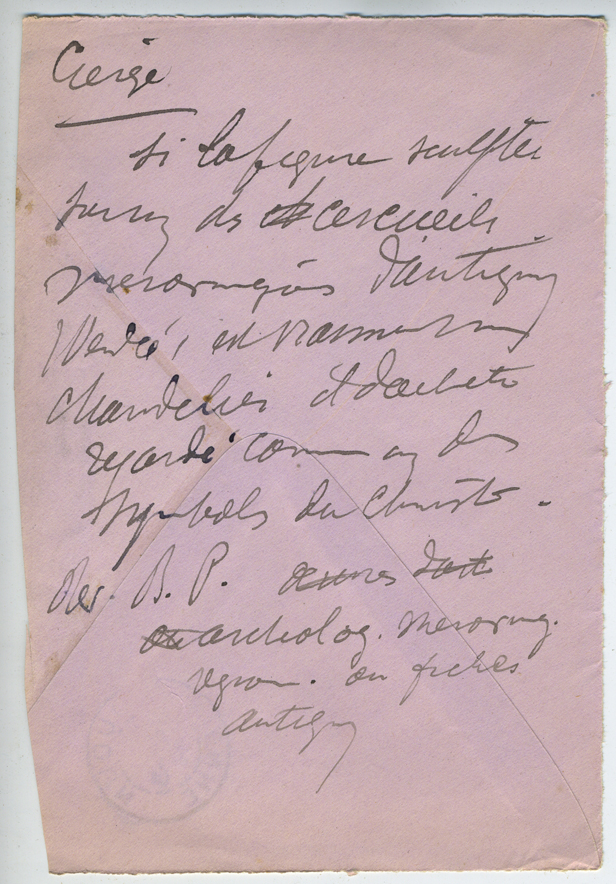 Cierge
si la figure sculptée
sur un des cercueils
merovingiens d'Antigny
Vendée, est vraiment un
chandelier et doit être
regardé comme un des
symboles du Christ.
B. P. œuvres d'art
archeolog. meroving.
ou fiches
Antigny